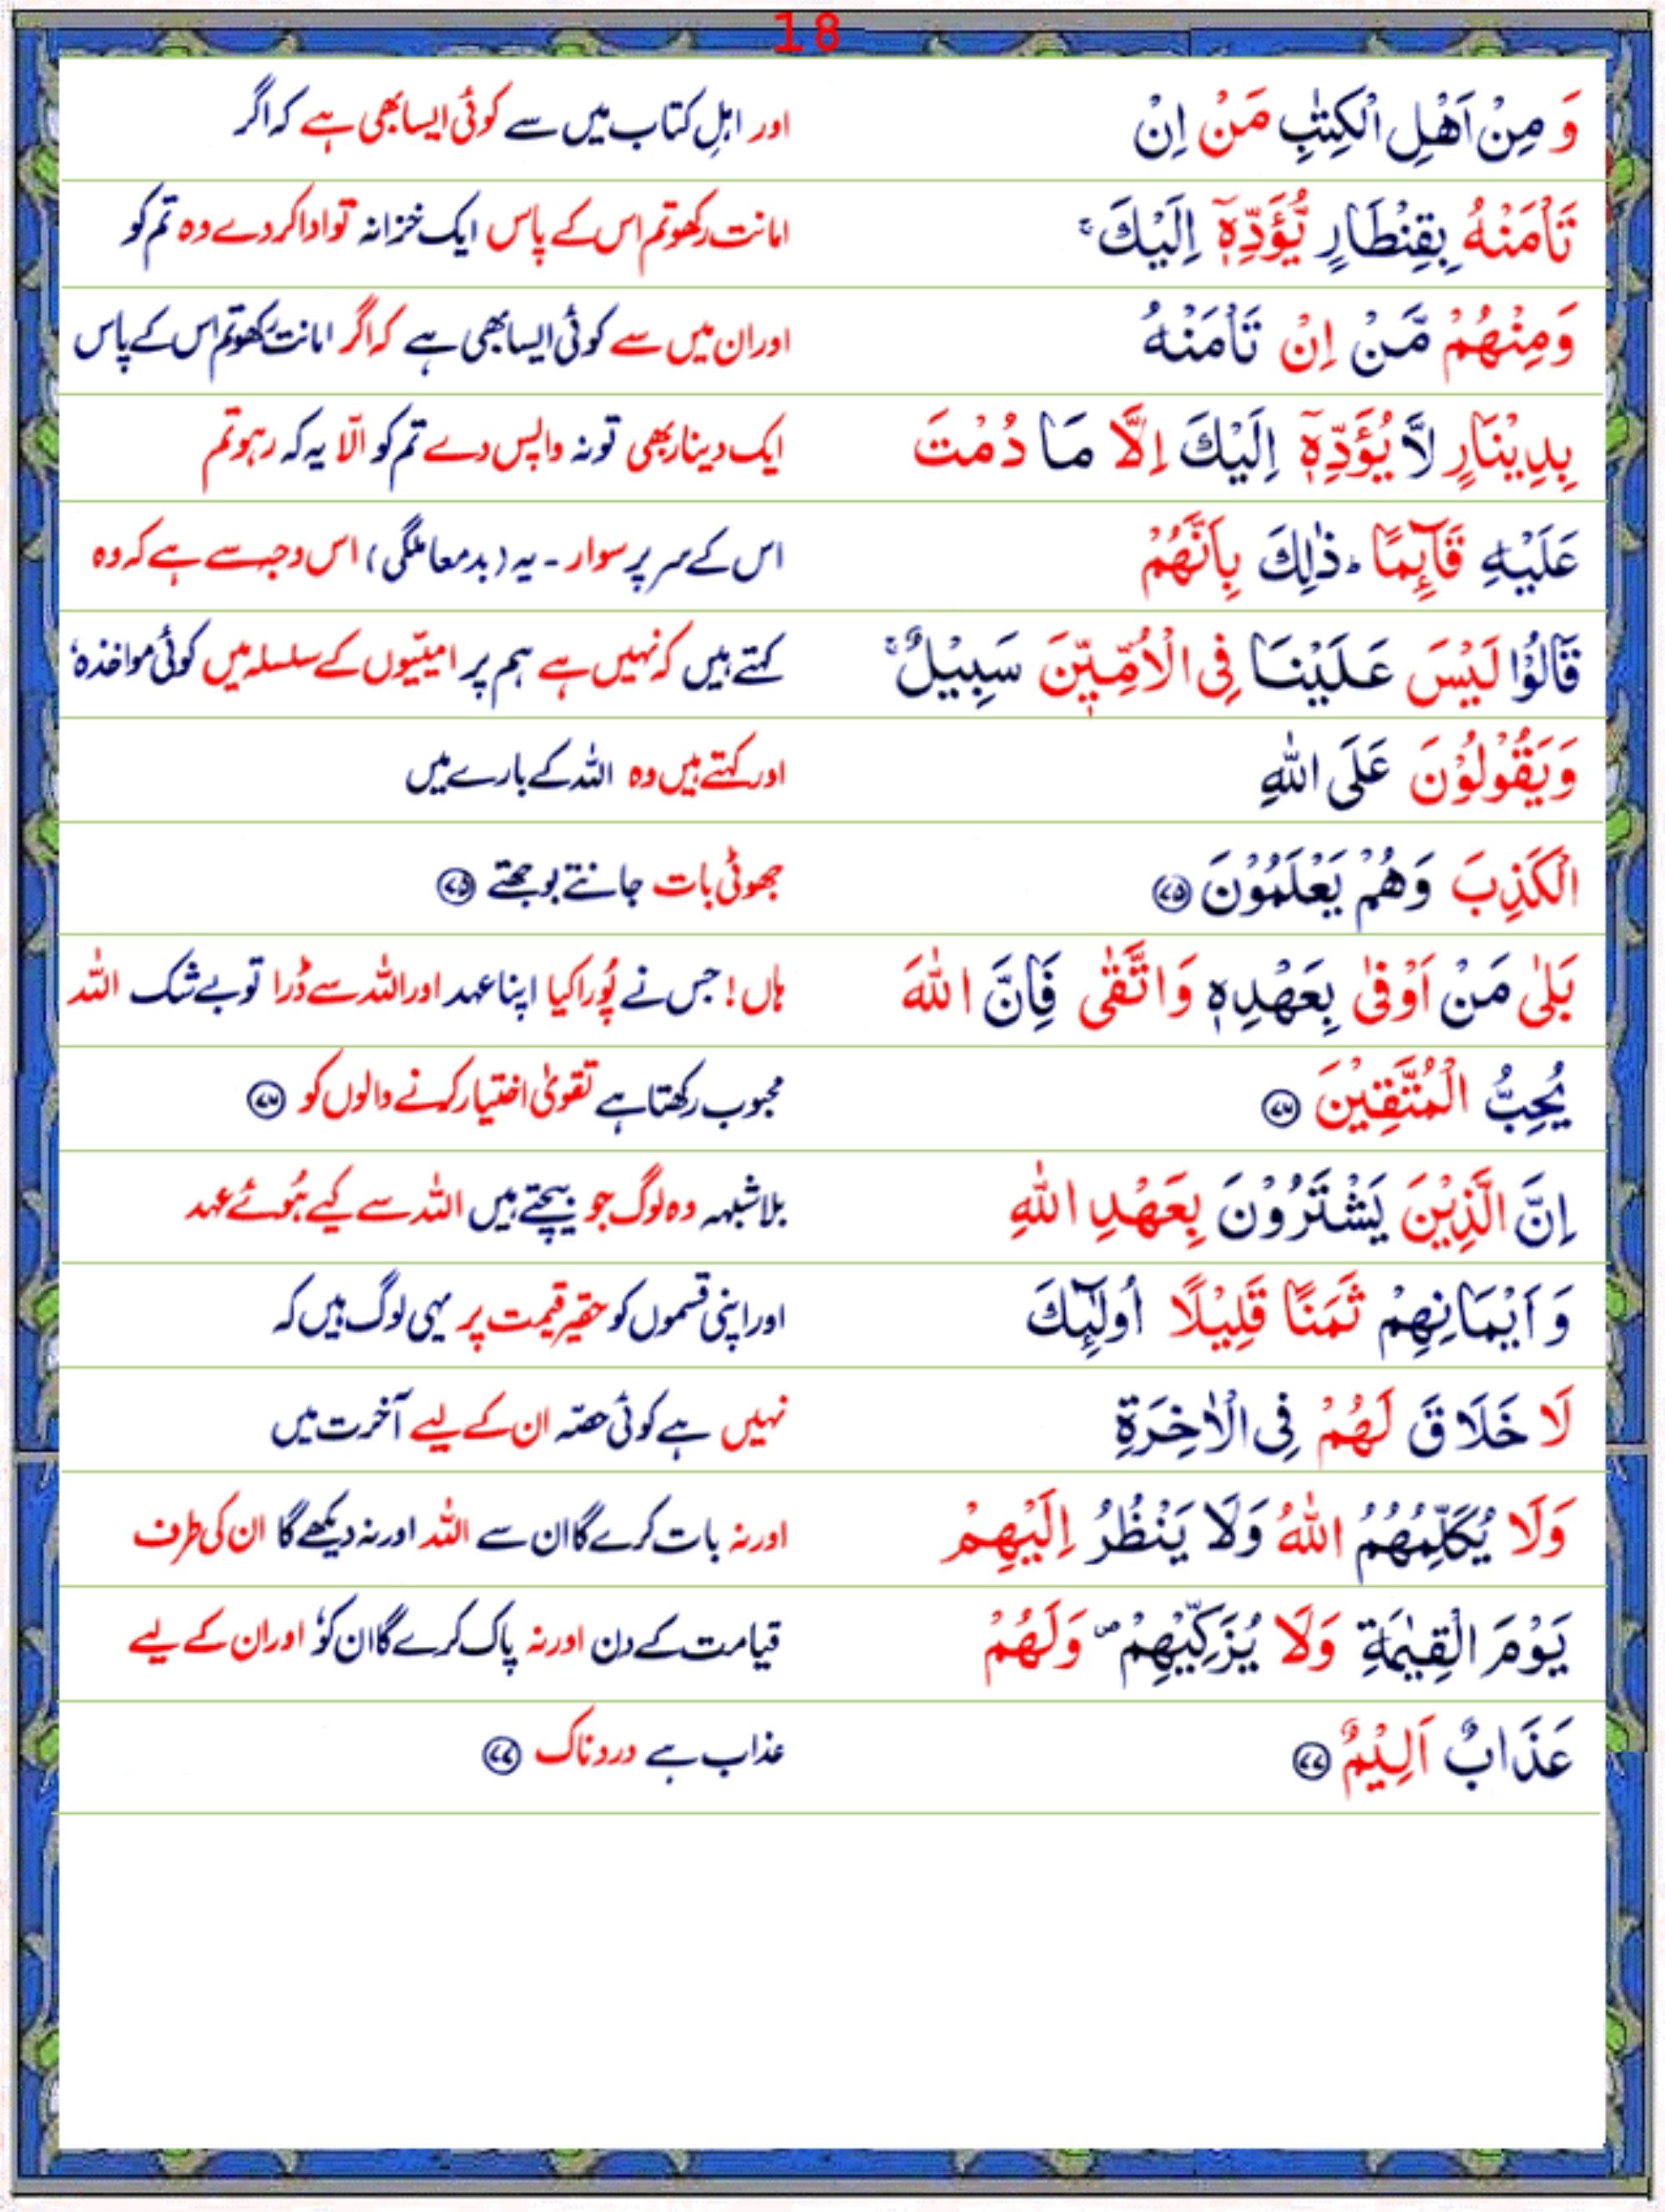 18
وَ مِنْ اَهْلِ الْكِتٰبِ مَنْ اِنْ اور اہلِ کتاب میں سے کوئی ایسا بھی ہے کہ اگر
تَاْمَنْهُ بِقِنْطَارٍ يُّؤَدِّهٖٓ اِلَيْكَ ۚ امانت رکھو تم اس کے پاس ایک خزانہ تو ادا کردے وہ تم کو
وَمِنْهُمْ مَّنْ اِنْ تَاْمَنْهُ اور ان میں سے کوئی ایسا بھی ہے کہ اگر امانت رکھو تم اس کے پاس
بِدِيْنَارٍ لَّا يُؤَدِّهٖٓ اِلَيْكَ اِلَّا مَا دُمْتَ ایک دینار بھی تو نہ واپس دے تم کو الّا یہ کہ رہو تم
عَلَيْهِ قَآئِمًا ؕ ذٰلِكَ بِاَنَّهُمْ اس کے سر پر سوار ۔ یہ (بدمعاملگی) اس وجہ سے ہے کہ وہ
قَالُوْا لَيْسَ عَلَيْنَا فِى الْاُمِّيّٖنَ سَبِيْلٌ ۚ کہتے ہیں کہ نہیں ہے ہم پر امیّیوں کے سلسلہ میں کوئی مواخذہ،
وَيَقُوْلُوْنَ عَلَى اللّٰهِ اور کہتے ہیں وہ اللہ کے بارے میں
الْكَذِبَ وَهُمْ يَعْلَمُوْنَ ۷۵ جھوٹی بات جانتے بوجھتے ۷۵
بَلٰى مَنْ اَوْفٰى بِعَهْدِهٖ وَاتَّقٰى فَاِنَّ اللّٰهَ ہاں! جس نے پُورا کیا اپنا عہد اور اللہ سے ڈرا تو بے شک اللہ
يُحِبُّ الْمُتَّقِيْنَ ۷۶ محبوب رکھتا ہے تقویٰ اختیار کرنے والوں کو ۷۶
اِنَّ الَّذِيْنَ يَشْتَرُوْنَ بِعَهْدِ اللّٰهِ بلاشبہہ وہ لوگ جو بیچتے ہیں اللہ سے کیے ہُوئے عہد
وَ اَيْمَانِهِمْ ثَمَنًا قَلِيْلًا اُولٰٓئِكَ اور اپنی قسموں کو حقیر قیمت پر یہی لوگ ہیں کہ
لَا خَلَاقَ لَهُمْ فِى الْاٰخِرَةِ نہیں ہے کوئی حصّہ ان کے لیے آخرت میں
وَلَا يُكَلِّمُهُمُ اللّٰهُ وَلَا يَنْظُرُ اِلَيْهِمْ اور نہ بات کرے گا ان سے اللہ اور نہ دیکھے گا ان کی طرف
يَوْمَ الْقِيٰمَةِ وَلَا يُزَكِّيْهِمْ ۪ وَلَهُمْ قیامت کے دن اور نہ پاک کرے گا ان کو، اور ان کے لیے
عَذَابٌ اَلِيْمٌ ۷۷ عذاب ہے دردناک ۷۷